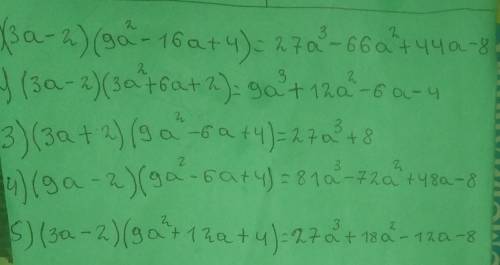 )(3a-2)(9a²-16a+4)=27a³-66a²+44a-8
)(3a-2)(3a²+6a+2)=9a³+12a²-6a-4
3)(3a+2)(9a²-6a+4)=27a³+8
4)(9a-2)(9a²-6a+4)=81a³-72a²+48a-8
5)(3a-2)(9a²+12a+4)=27a³+18a²-12a-8